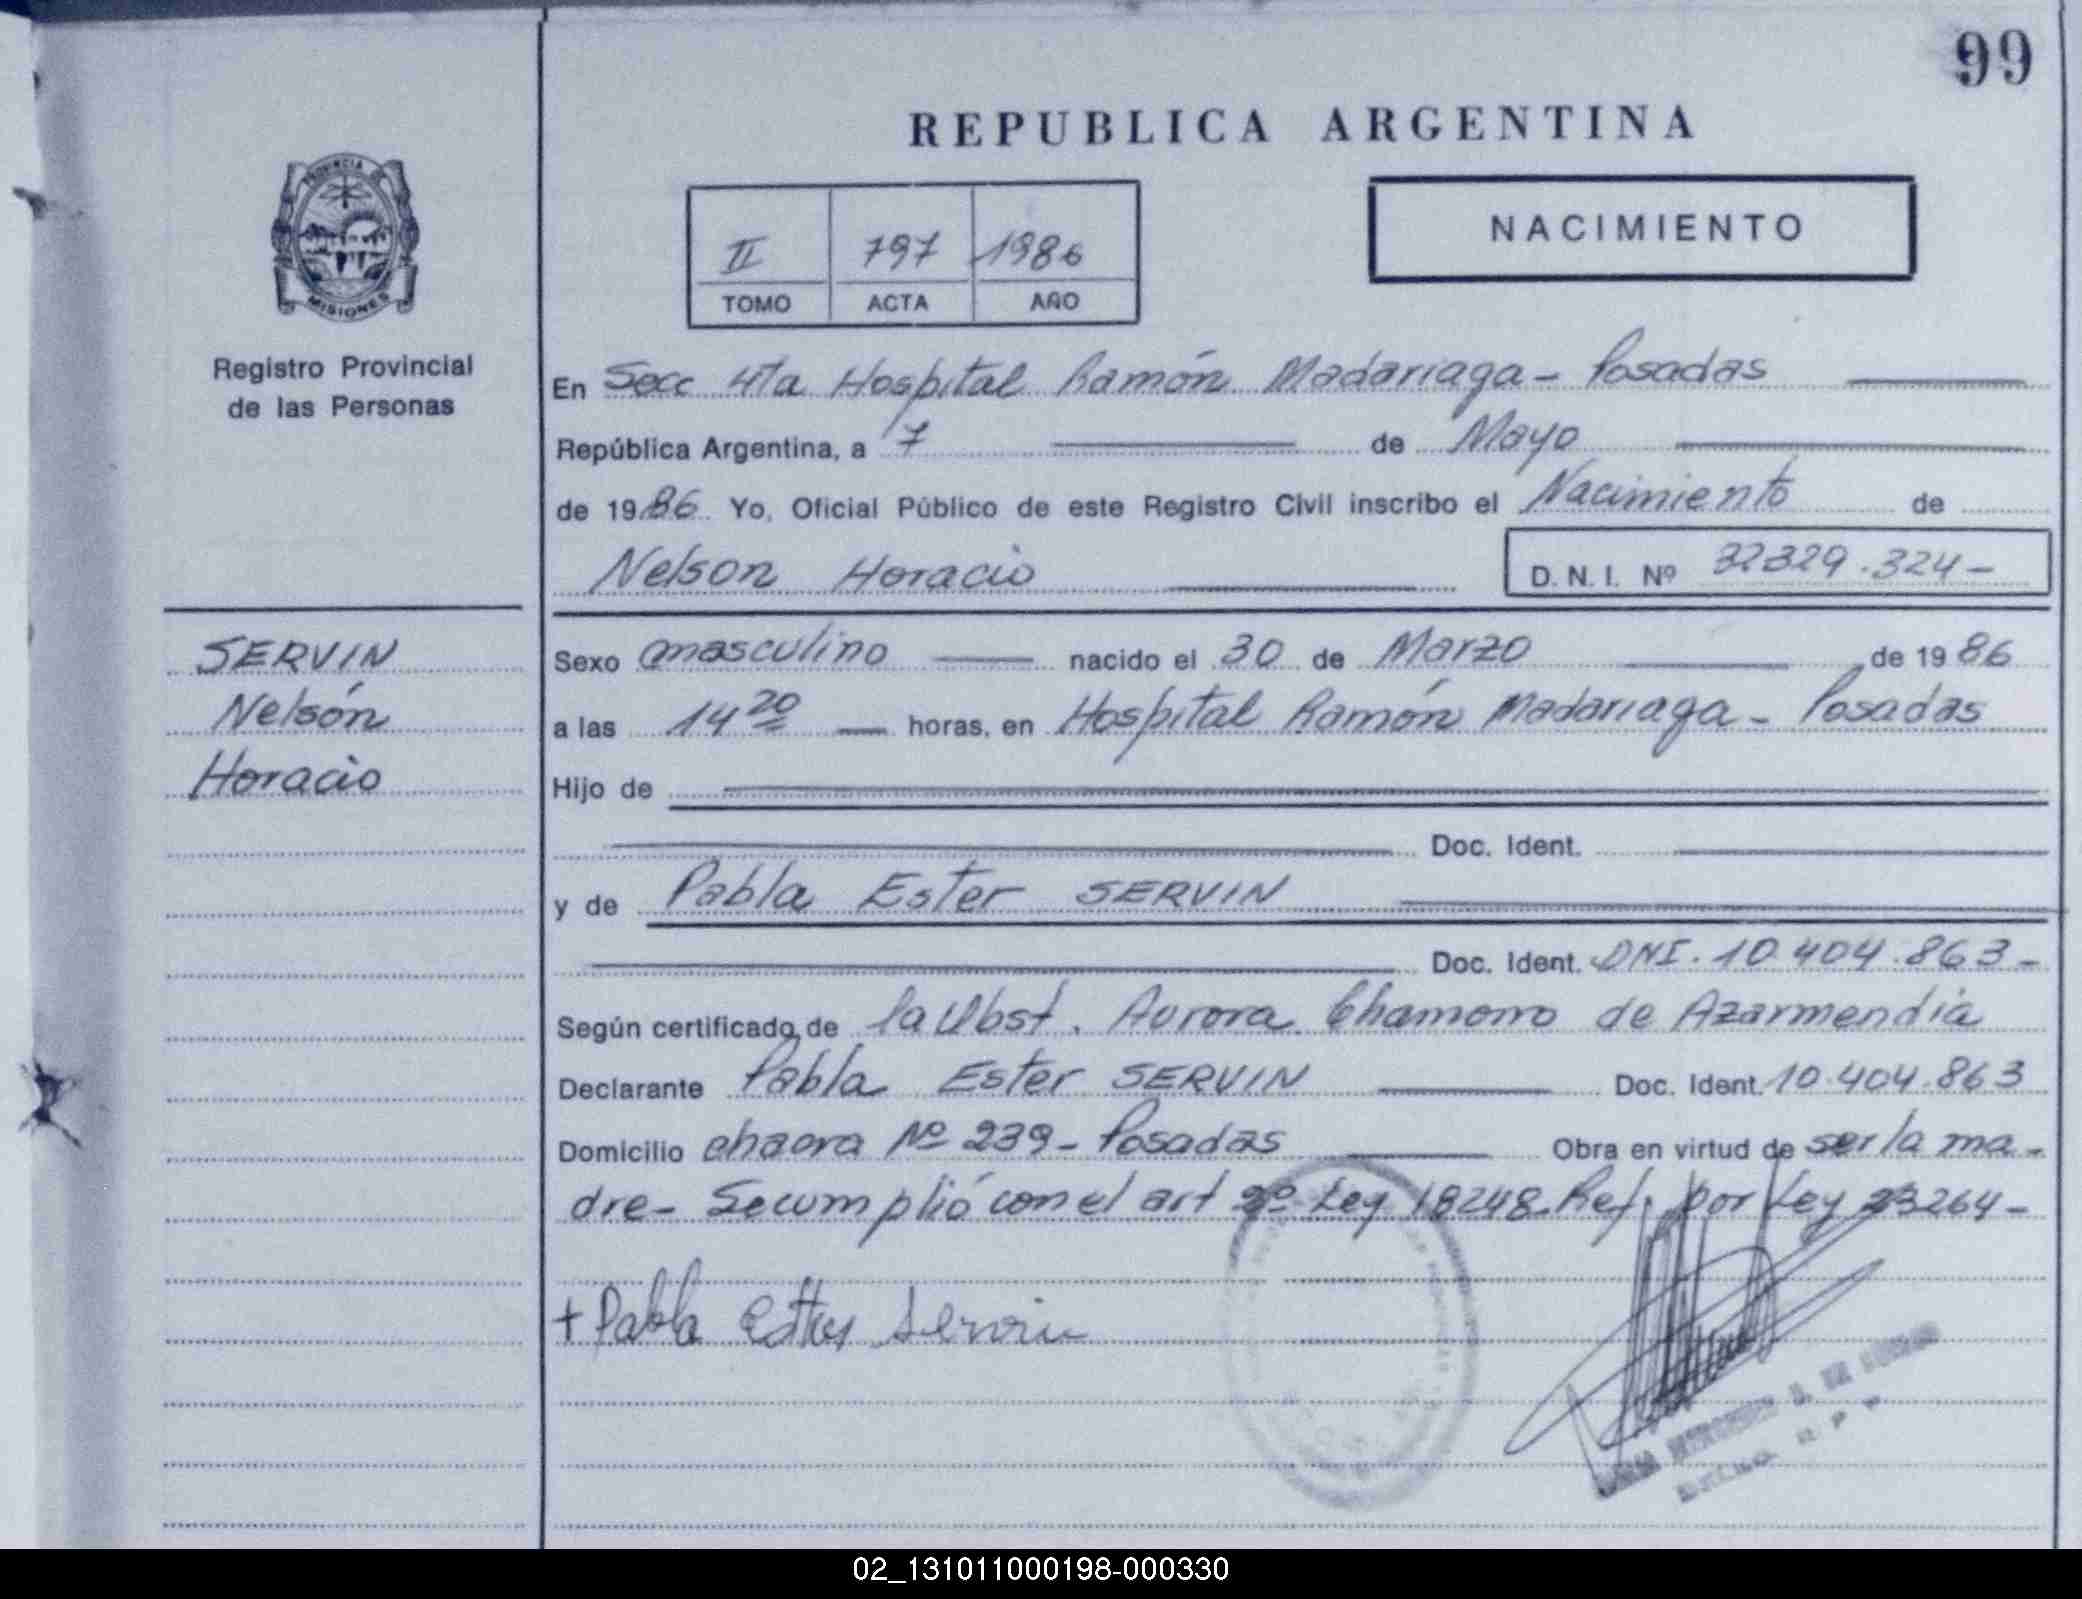 99
REPUBLICA ARGENTINA
PROVINCIA DE
MISIONES
Registro Provincial
de las Personas
II 797 1986
TOMO ACTA AÑO
NACIMIENTO
En Secc 4ta Hospital Ramón Madariaga - Posadas
República Argentina, a 7 de Mayo
de 1986 Yo, Oficial Público de este Registro Civil inscribo el Nacimiento de
Nelson Horacio D.N.I. Nº 32329.324-
SERVIN
Nelsón
Horacio
Sexo masculino nacido el 30 de Marzo de 1986
a las 14 20 horas, en Hospital Ramón Madariaga - Posadas
Hijo de
Doc. Ident.
y de Pabla Ester SERVIN
Doc. Ident. DNI. 10.404.863-
Según certificado de la Obst. Aurora Chamorro de Azarmendia
Declarante Pabla Ester SERVIN Doc. Ident. 10.404.863
Domicilio chacra Nº 239 - Posadas Obra en virtud de ser la ma-
dre - Se cumplió con el art 2º Ley 18248. Ref. por Ley 23264-
+ Pabla Servin
02_131011000198-000330